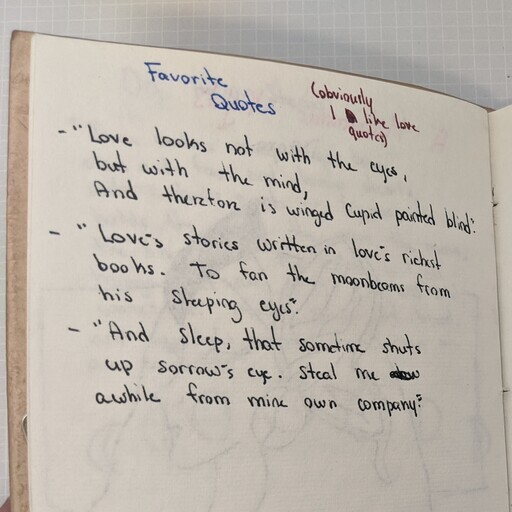 Favorite
Quotes
(obviously
I like love
quotes)
- "Love looks not with the eyes,
but with the mind,
And therefore is winged Cupid painted blind".
- "Love's stories written in love's richest
books. To fan the moonbeams from
his sleeping eyes".
- "And sleep, that sometime shuts
up sorrow's eye. Steal me
awhile from mine own company."